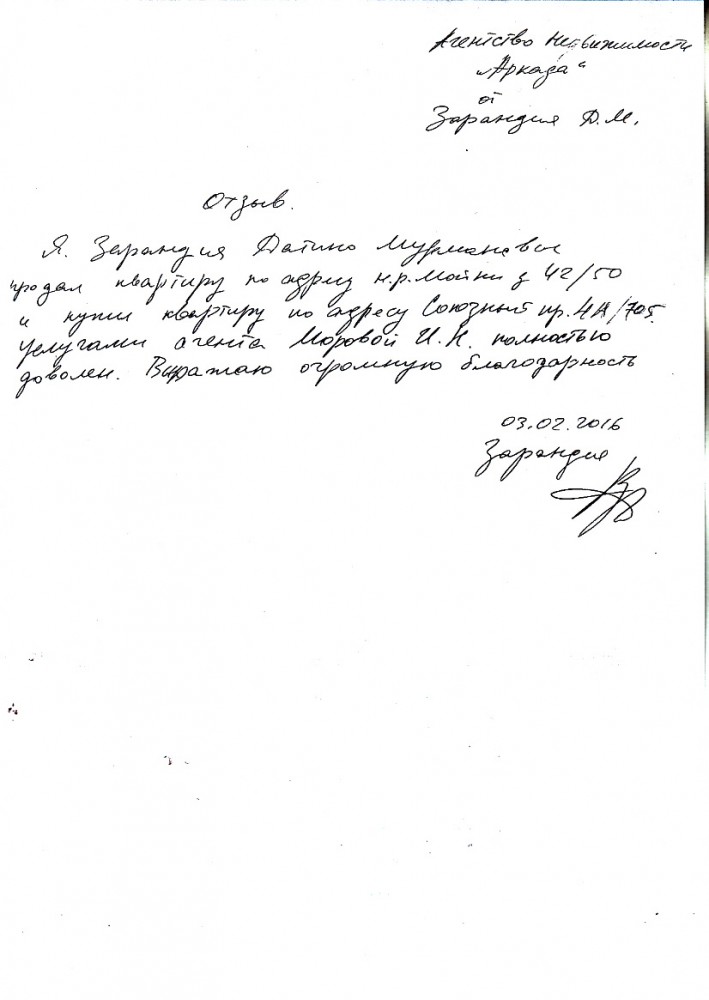 Агентство Недвижимости
„Аркада“
от
Зарандия Д.М.
Отзыв.
Я. Зарандия Датико
продал квартиру по адресу н.р. Мойки д 42/50
и купил квартиру по адресу Союзный пр. 4А/705.
Услугами агента Моровой И.Н. полностью
доволен. Выражаю огромную благодарность
03.02.2016
Зарандия